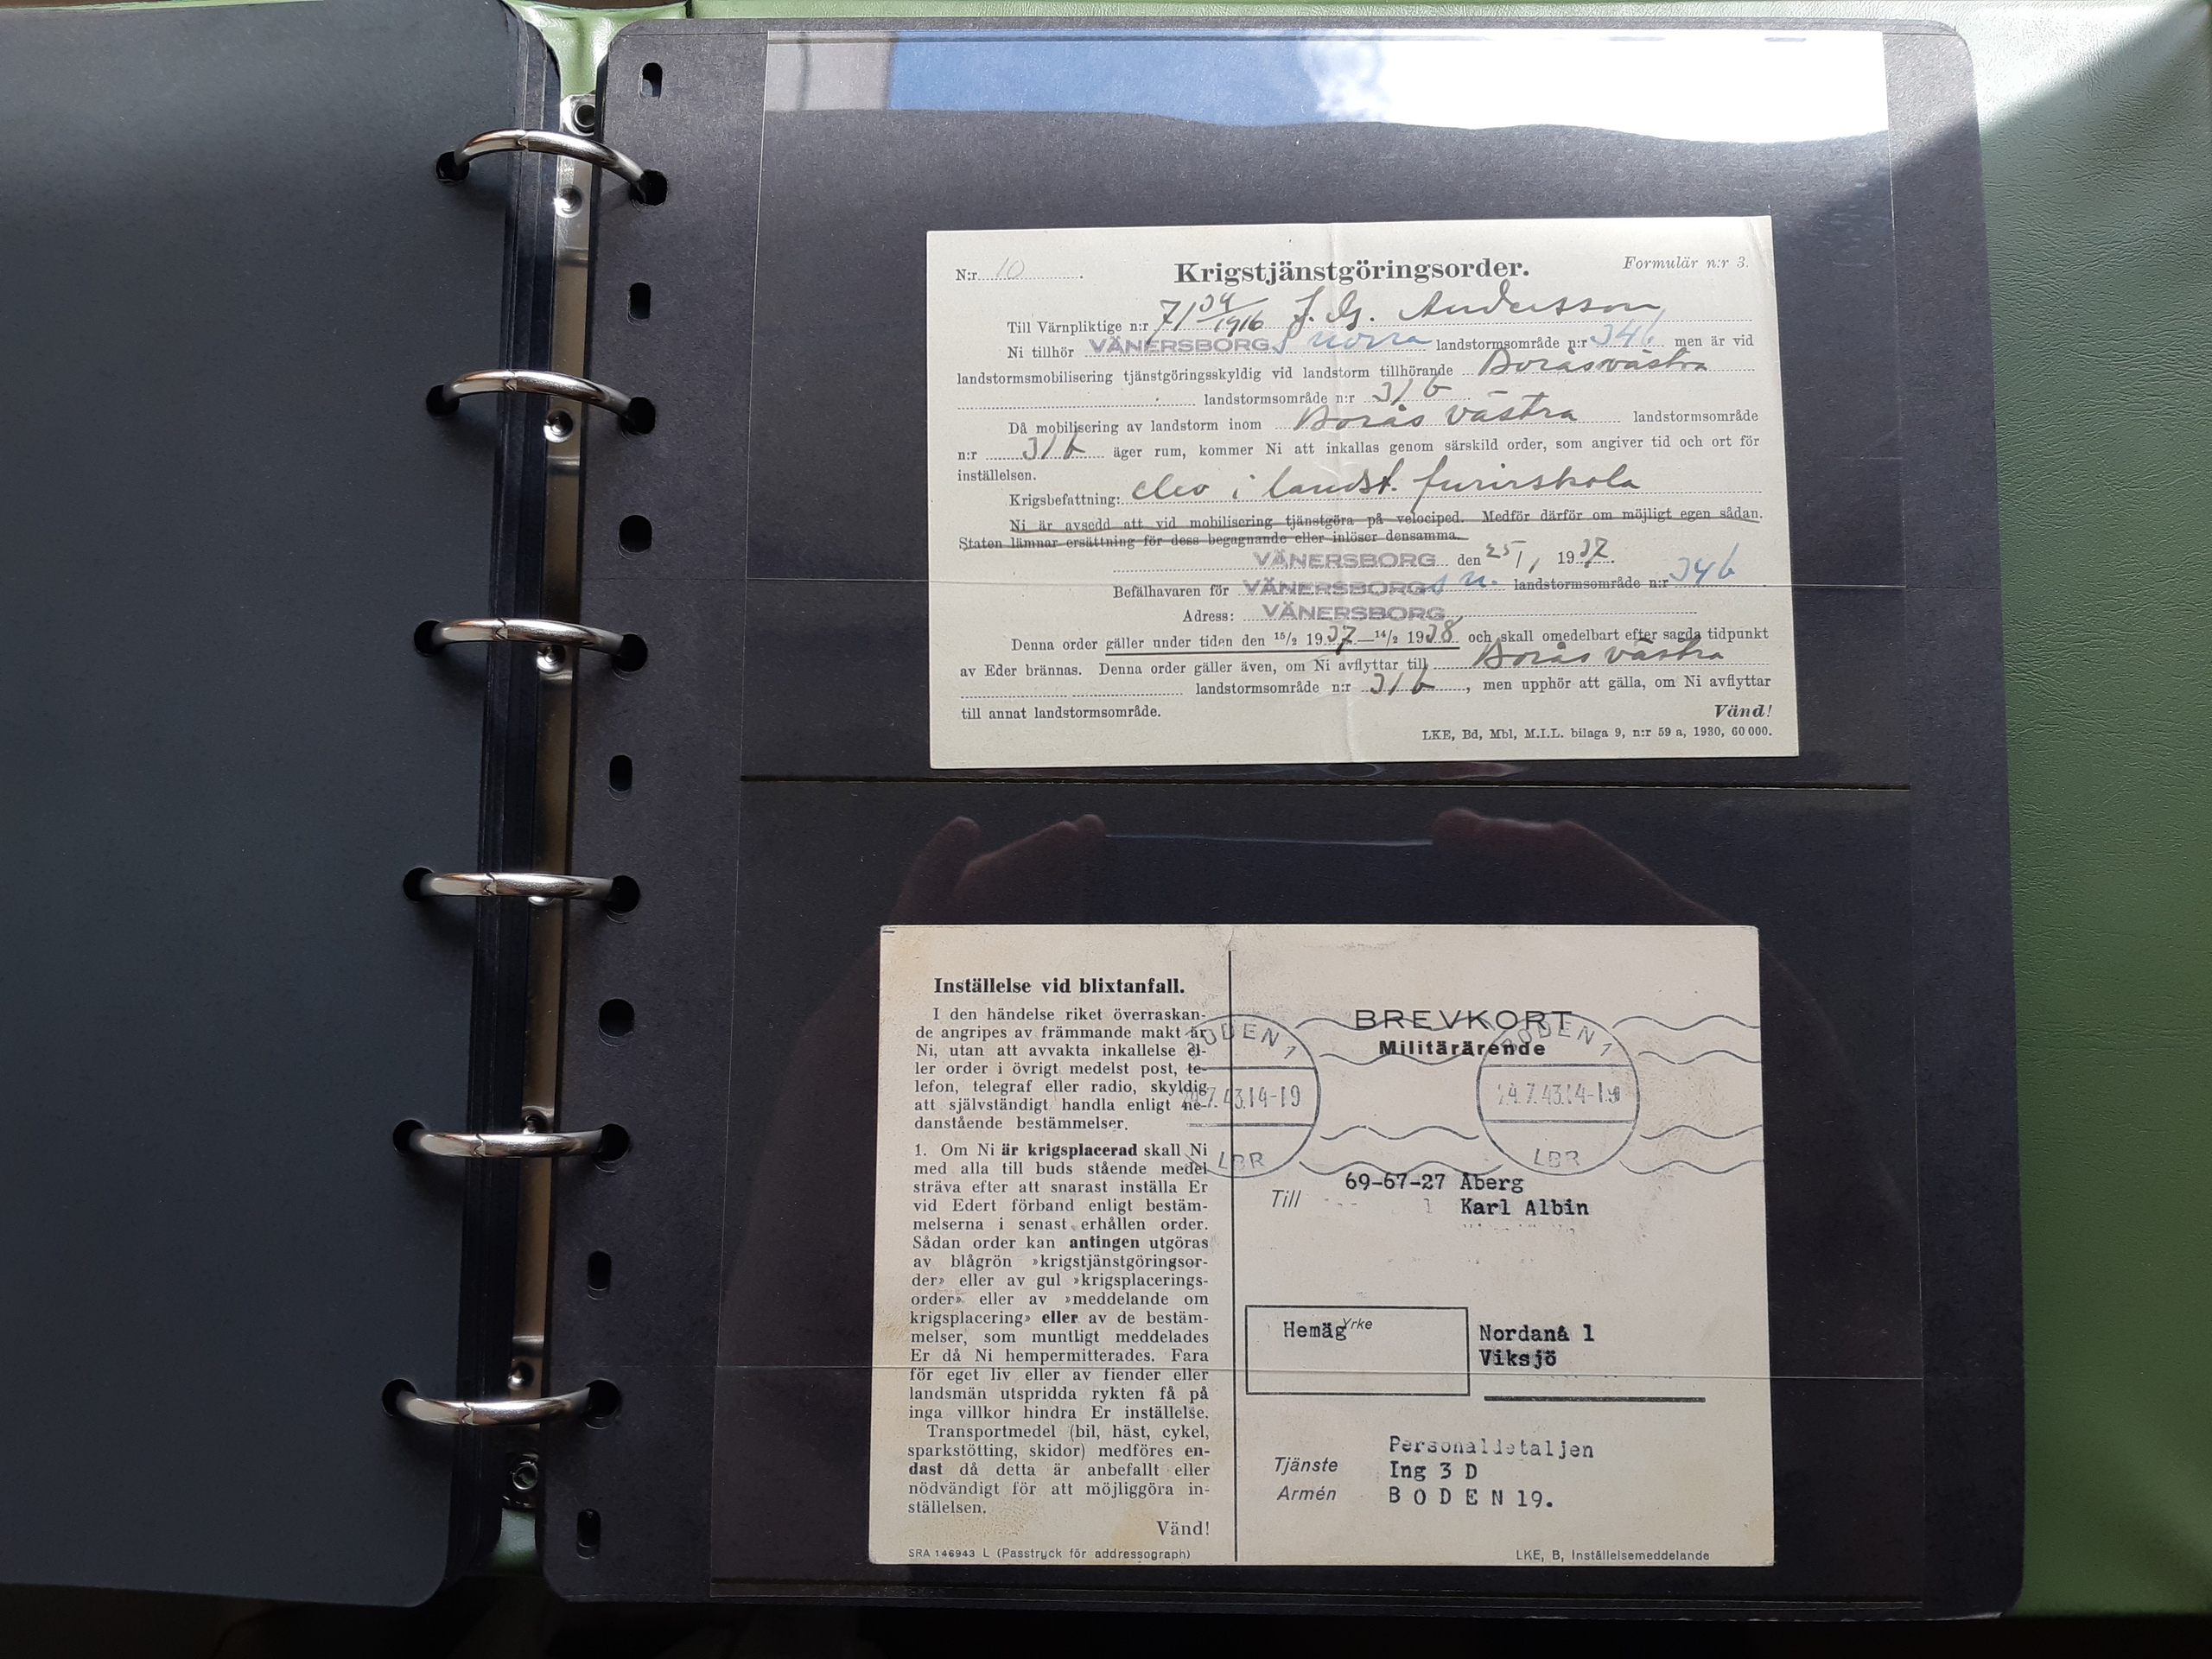 N:r 10 .
Krigstjänstgöringsorder.
Formulär n:r 3.
Till Värnpliktige n:r 7/34/1916 J. G. Andersson
Ni tillhör VÄNERSBORGS norra landstormsområde n:r 34b men är vid
landstormsmobilisering tjänstgöringsskyldig vid landstorm tillhörande Borås västra
landstormsområde n:r 31b
Då mobilisering av landstorm inom Borås västra landstormsområde
n:r 31b äger rum, kommer Ni att inkallas genom särskild order, som angiver tid och ort för
inställelsen.
Krigsbefattning: elev i landst. furirskola
Ni är avsedd att vid mobilisering tjänstgöra på velociped. Medför därför om möjligt egen sådan.
Staten lämnar ersättning för dess begagnande eller inlöser densamma.
VÄNERSBORG den 25/1 1937.
Befälhavaren för VÄNERSBORGS n. landstormsområde n:r 34b .
Adress: VÄNERSBORG
Denna order gäller under tiden den 15/2 1937—14/2 1938 och skall omedelbart efter sagda tidpunkt
av Eder brännas. Denna order gäller även, om Ni avflyttar till Borås västra
landstormsområde n:r 31b, men upphör att gälla, om Ni avflyttar
till annat landstormsområde.
Vänd!
LKE, Bd, Mbl, M.I.L. bilaga 9, n:r 59 a, 1930, 60 000.
Inställelse vid blixtanfall.
I den händelse riket överraskan-
de angripes av främmande makt är
Ni, utan att avvakta inkallelse el-
ler order i övrigt medelst post, te-
lefon, telegraf eller radio, skyldig
att självständigt handla enligt ne-
danstående bestämmelser.
1. Om Ni är krigsplacerad skall Ni
med alla till buds stående medel
sträva efter att snarast inställa Er
vid Edert förband enligt bestäm-
melserna i senast erhållen order.
Sådan order kan antingen utgöras
av blågrön »krigstjänstgöringsor-
der» eller av gul »krigsplacerings-
order» eller av »meddelande om
krigsplacering» eller av de bestäm-
melser, som muntligt meddelades
Er då Ni hempermitterades. Fara
för eget liv eller av fiender eller
landsmän utspridda rykten få på
inga villkor hindra Er inställelse.
Transportmedel (bil, häst, cykel,
sparkstötting, skidor) medföres en-
dast då detta är anbefallt eller
nödvändigt för att möjliggöra in-
ställelsen.
Vänd!
SRA 146943 L (Passtryck för addressograph)
BREVKORT
Militärärende
BODEN 1
24.7.43.14-19
LBR
BODEN 1
24.7.43.14-19
LBR
Till 69-67-27 Åberg
Karl Albin
Hemäg Yrke
Nordanå 1
Viksjö
Personaldetaljen
Tjänste Ing 3 D
Armén BODEN 19.
LKE, B, Inställelsemeddelande